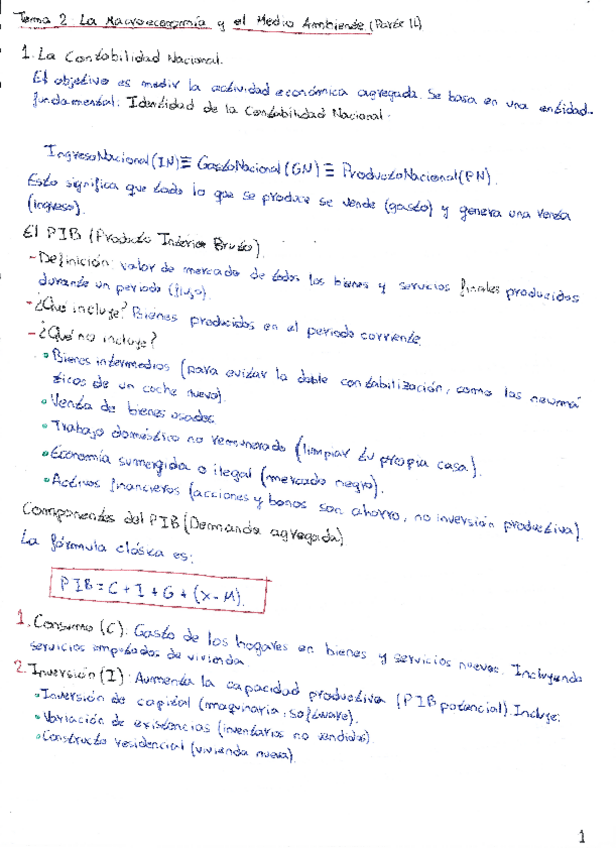 Tema 2: La Macroeconomía y el Medio Ambiente (Parte II)
1. La Contabilidad Nacional.
El objetivo es medir la actividad económica agregada. Se basa en una entidad
fundamental: Identidad de la Contabilidad Nacional.
Ingreso Nacional (IN) ≡ Gasto Nacional (GN) ≡ Producto Nacional (PN).
Esto significa que todo lo que se produce se vende (gasto) y genera una renta
(ingreso).
El PIB (Producto Interior Bruto).
- Definición: valor de mercado de todos los bienes y servicios finales producidos
durante un periodo (flujo).
- ¿Qué incluye? Bienes producidos en el periodo corriente.
- ¿Qué no incluye?
• Bienes intermedios (para evitar la doble contabilización, como los neumá
ticos de un coche nuevo).
• Venta de bienes usados
• Trabajo doméstico no remunerado (limpiar tu propia casa).
• Economía sumergida o ilegal (mercado negro).
• Activos financieros (acciones y bonos son ahorro, no inversión productiva)
Componentes del PIB (Demanda agregada)
La fórmula clásica es:
PIB = C + I + G + (X - M).
1. Consumo (C). Gasto de los hogares en bienes y servicios nuevos. Incluyendo
servicios imputados de vivienda
2. Inversión (I): Aumenta la capacidad productiva (PIB potencial). Incluye:
• Inversión de capital (maquinaria, software).
• Variación de existencias (inventarios no vendidos)
• Constructo residencial (vivienda nueva).
1